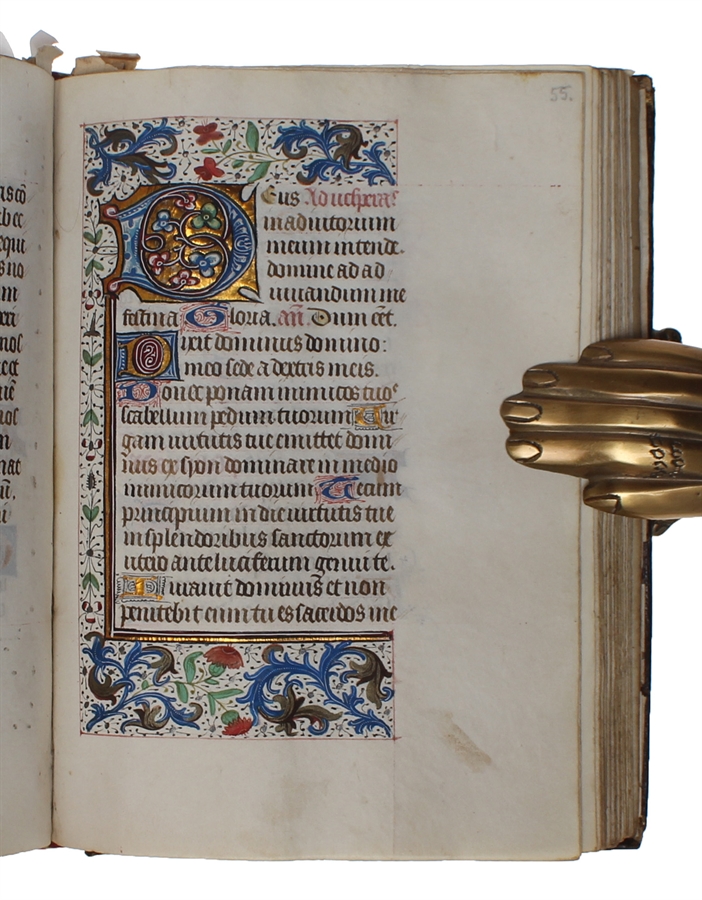 55.
Deus Ad vesperas
in adiutorium
meum intende.
domine ad ad
iuuandum me
festina Gloria. añ. Dum
Dixit dominus domino:
meo sede a dextris meis.
Donec ponam inimicos tuos
scabellum pedum tuorum Uir
gam uirtutis tue emittet domi
nus ex syon dominare in medio
inimicorum tuorum Tecum
principium in die uirtutis tue
in splendoribus sanctorum ex
utero ante luciferum genui te.
Iurauit dominus et non
penitebit eum tu es sacerdos in e